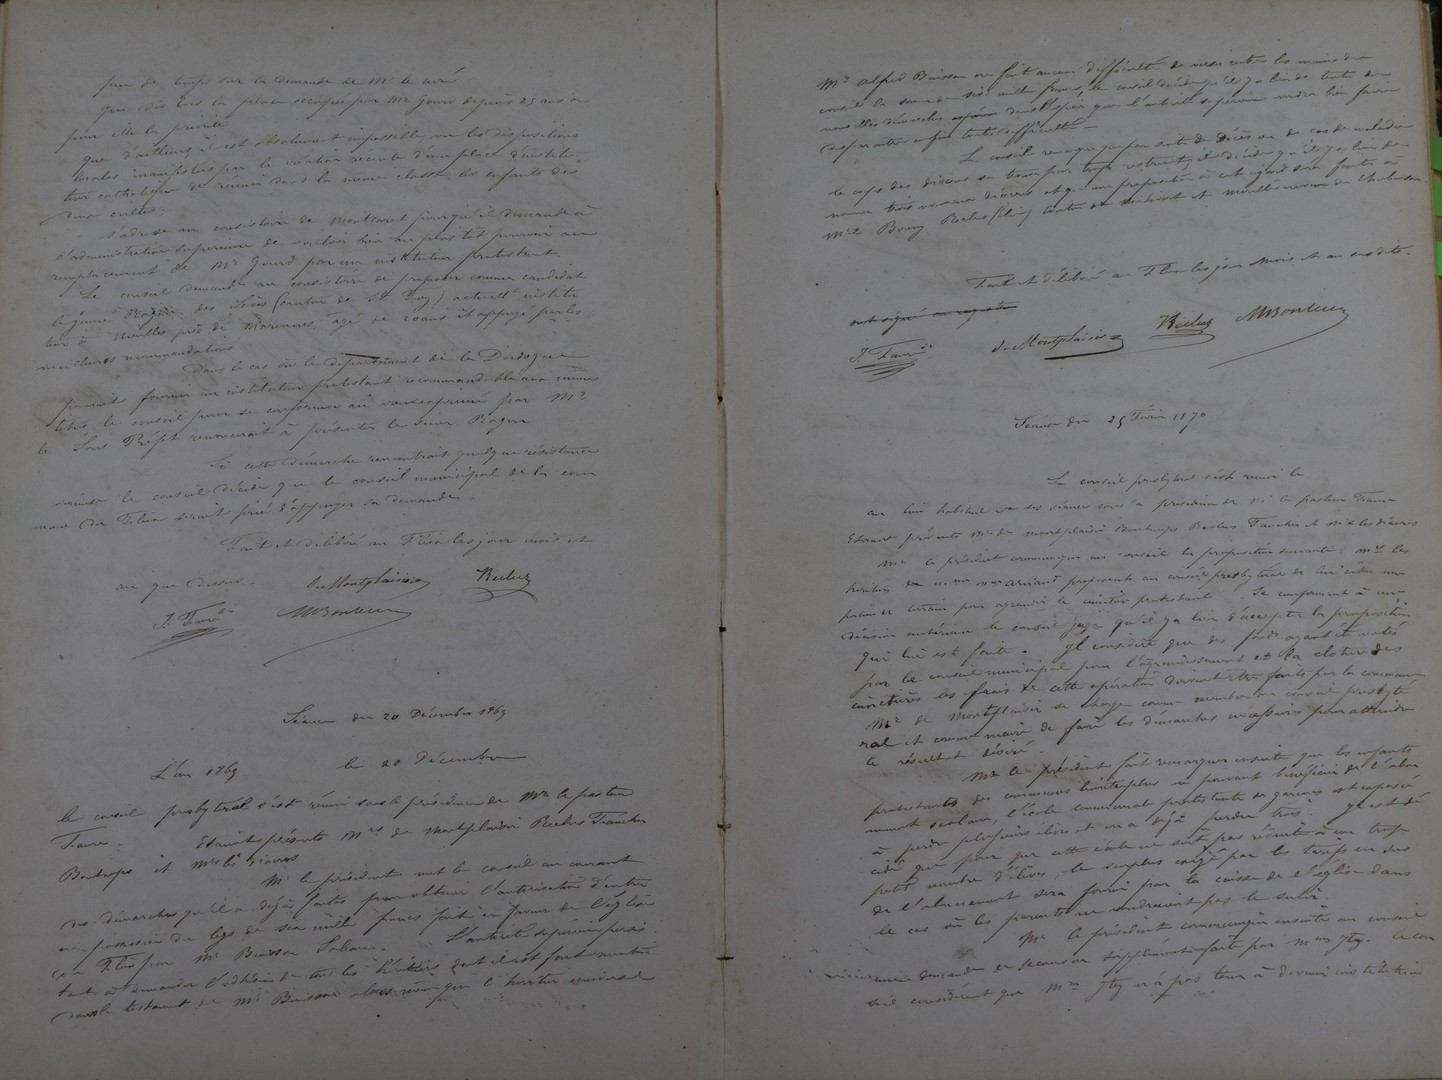 peu de temps sur la demande de Mr le curé
que dès lors la place occupée par Mr Gourd depuis 25 ans a
pour elle la priorité
que d'ailleurs il est absolument impossible vu les dispositions
locales manifestées par la création récente d'une place d'institu-
teur catholique de réunir dans la même classe les enfants des
deux cultes.
s'adresse au consistoire de Montcaret pour qu'il demande à
l'administration supérieure de vouloir bien au plus tôt pourvoir au
remplacement de Mr Gourd par un instituteur protestant.
Le conseil demande au consistoire de proposer comme candidat
le jeune Rogon des Lèves (canton de Ste Foy) actuellt institu
teur à près de Marennes, âgé de 20 ans et appuyé par les
meilleures recommandations
Dans le cas où le département de la Dordogne
pourrait fournir un instituteur protestant recommandable aux mêmes
titres le conseil pour se conformer au vœu exprimé par Mr
le Sous Préft renoncerait à présenter le sieur Rogon
Si cette démarche rencontrait quelque résistance
le conseil décide que le conseil municipal de la com
mune du Fleix serait prié d'appuyer sa demande.
Fait et délibéré au Fleix les jour mois et
an que dessus.
de Montplaisir Reclus
J. Faure MBontems
Séance du 20 Décembre 1869
L'an 1869 le 20 Décembre
le conseil presbytéral s'est réuni sous la présidence de Mr le pasteur
Faure. Etaient présents Mrs de Montplaisir Reclus Faucher
Bontemps et Mrs les diacres
Mr le président met le conseil au courant
des démarches qu'il a déjà faites pour obtenir l'autorisation d'entrer
en possession du legs de six mille francs fait en faveur de l'église
du Fleix par Mr Buisson L'autorité supérieure persis-
tant à demander l'adhésion de tous les héritiers dont il est fait mention
dans le testament de Mr Buisson alors même que l'héritier universel
Mr Alfred Buisson ne fait aucune difficulté de verser entre les mains du
conseil la somme de six mille francs, le conseil décide qu'il y a lieu de tenter de
nouvelles démarches dans l'espoir que l'autorité supérieure voudra bien faire
disparaître enfin toute difficulté —
Le conseil remarque que par suite de décès ou de cas de maladie
le corps des diacres se trouve par trop restreint, et décide qu'il y a lieu de
nommer trois nouveaux diacres et que une proposition à cet égard sera faite à
Mrs Bouny Reclus
Fait et délibéré au Fleix les jour mois et an susdits.
ont signé au registre
J. Faure de Montplaisir Reclus MBontems
Séance du 25 Février 1870
Le conseil presbytéral s'est réuni le
au lieu habituel de ses séances sous la présidence de Mr le pasteur Faure
Etaient présents Mrs de Montplaisir Bontemps Reclus Faucher et Mrs les diacres
Mr le président communique au conseil la proposition suivante: Mrs les
héritiers de Armand proposent au conseil presbytéral de lui céder un
terrain pour agrandir le cimetière protestant. Se conformant à une
décision antérieure le conseil juge qu'il y a lieu d'accepter la proposition
qui lui est faite. Il considère que des fonds ayant été votés
par le conseil municipal pour l'agrandissement et la clôture des
cimetières les frais de cette opération doivent être faits par la commune
Mr de Montplaisir se charge comme membre du conseil presbyté
ral et comme maire de faire les démarches nécessaires pour atteindre
le résultat désiré.
Mr le président fait remarquer ensuite que les enfants
protestants des communes limitrophes ne pouvant bénéficier de l'abon
nement scolaire, l'école communale protestante de garçons est exposée
à perdre plusieurs élèves et en a déjà perdu trois. Il est dé
cidé que pour que cette école ne soit pas réduite à un trop
petit nombre d'élèves, le surplus exigé par les tarifs en sus
de l'abonnement sera fourni par la caisse de l'église dans
le cas où les parents ne voudraient pas le subir.
Mr le président communique ensuite au conseil
une demande de secours supplément faite par Mme Le con
seil considérant que Mme n'a pas tenu à devenir institutrice